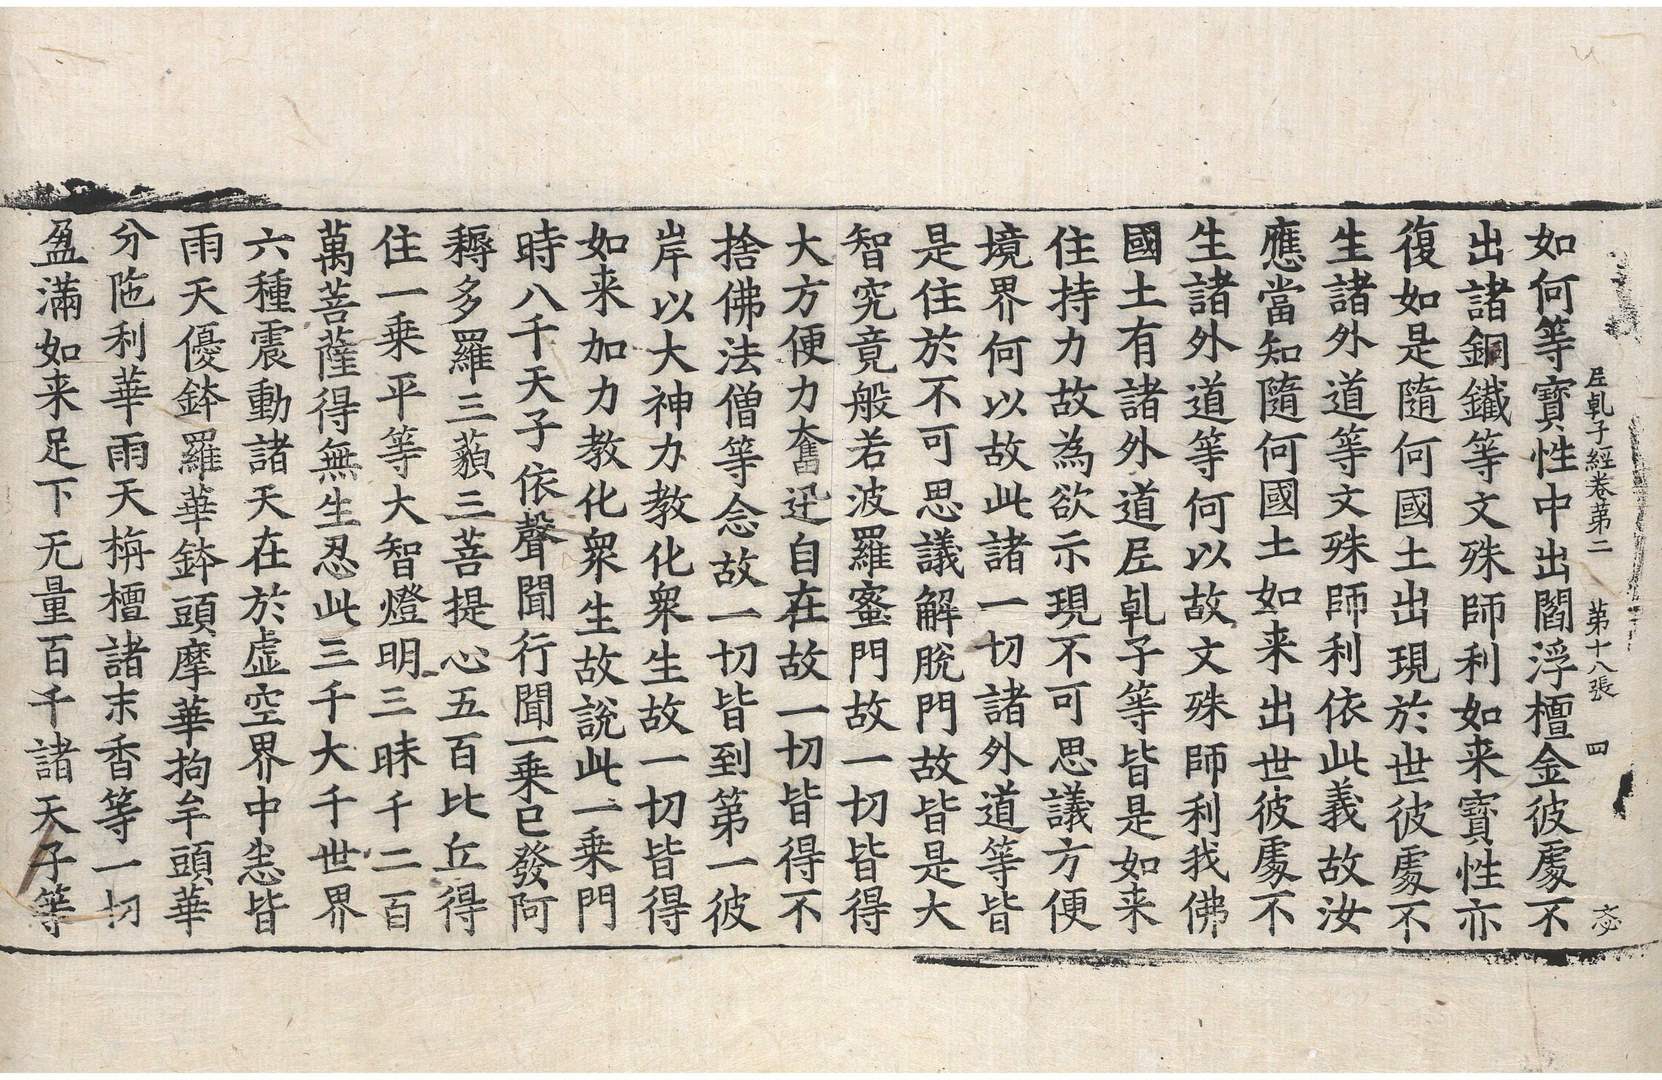 𡰱乹子經卷第二 第十八張 四
如何等寶性中出閻浮檀金彼處不
出諸銅鐵等文殊師利如来寶性亦
復如是隨何國土出現於世彼處不
生諸外道等文殊師利依此義故汝
應當知隨何國土如来出世彼處不
生諸外道等何以故文殊師利我佛
國土有諸外道𡰱乹子等皆是如来
住持力故為欲示現不可思議方便
境界何以故此諸一切諸外道等皆
是住於不可思議解脫門故皆是大
智究竟般若波羅蜜門故一切皆得
大方便力奮迅自在故一切皆得不
捨佛法僧等念故一切皆到第一彼
岸以大神力教化衆生故一切皆得
如来加力教化衆生故說此一乘門
時八千天子依聲聞行聞一乘已發阿
耨多羅三藐三菩提心五百比丘得
住一乘平等大智燈明三昧千二百
萬菩薩得無生忍此三千大千世界
六種震動諸天在於虛空界中悉皆
雨天優鉢羅華鉢頭摩華拘牟頭華
分陁利華雨天栴檀諸末香等一切
盈滿如来足下无量百千諸天子等